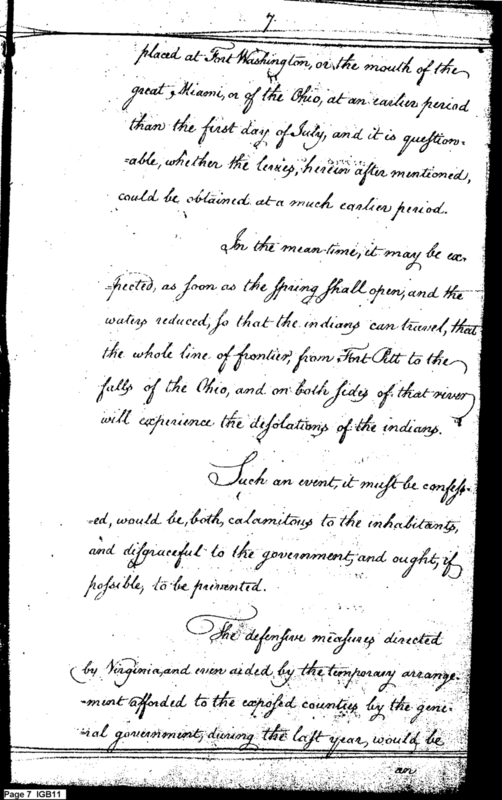 7.
placed at Fort Washington, or the mouth of the
great Miami, or of the Ohio, at an earlier period
than the first day of July, and it is question-
-able, whether the levies, herein after mentioned,
could be obtained at a much earlier period.
In the mean time, it may be ex-
-pected, as soon as the spring shall open, and the
waters reduced, so that the indians can travel, that
the whole line of frontier, from Fort Pitt to the
falls of the Ohio, and on both sides of that river
will experience the desolations of the indians.
Such an event, it must be confess-
-ed, would be, both, calamitous to the inhabitants,
and disgraceful to the government, and ought, if
possible, to be prevented.
The defensive measures directed
by Virginia, and even aided by the temporary arrange-
-ment afforded to the exposed counties by the gene-
-ral government, during the last year, would be
an
Page 7 IGB11